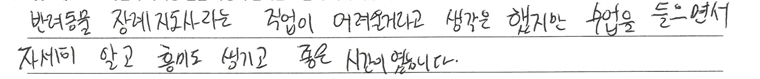 반려동물 장례지도사라는 직업이 어려운거라고 생각은 했지만 수업을 들으면서
자세히 알고 흥미도 생기고 좋은 시간이였습니다.